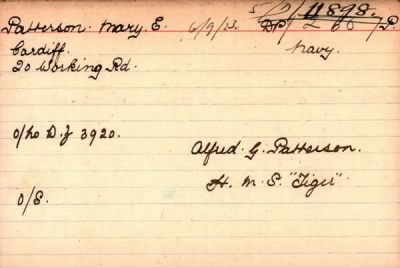 5/D/11898.
Patterson. Mary. E. 6/9/23. DP/L 60/P.
Cardiff. Navy.
20 Working Rd.
o/no D.J 3920.
Alfred. G. Patterson.
H. M. S. "Tiger".
O/S.